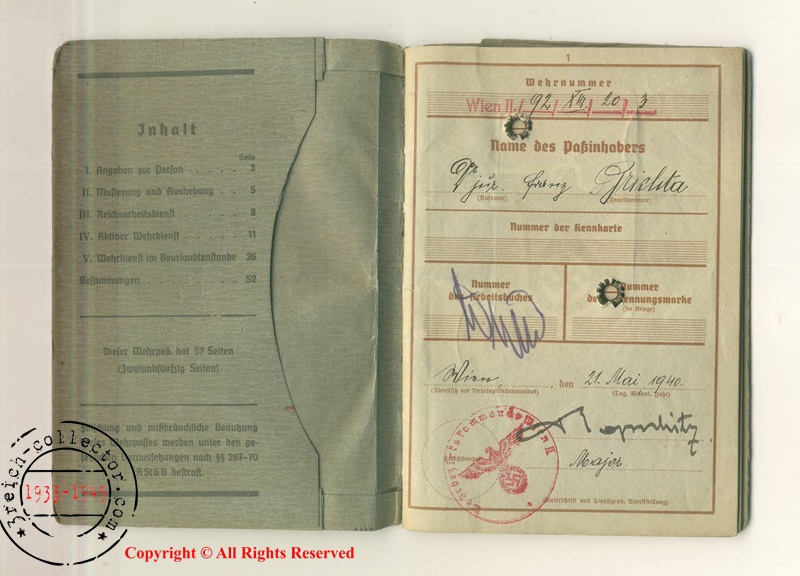 Inhalt
Seite
I. Angaben zur Person . . . . . . 3
II. Musterung und Aushebung . . . 5
III. Reichsarbeitsdienst . . . . . . 8
IV. Aktiver Wehrdienst . . . . . . 11
V. Wehrdienst im Beurlaubtenstande 36
Bestimmungen . . . . . . . . 52
Dieser Wehrpaß hat 52 Seiten
(Zweiundfünfzig Seiten)
und mißbräuchliche Benutzung
Wehrpasses werden unter den
Voraussetzungen nach §§ 267–70
RStGB bestraft.
3reich-collector.com
1933-1945
Copyright © All Rights Reserved
1
Wehrnummer
Wien II / 92 / XII / 20 / 3
Name des Paßinhabers
Dr jur. Franz
(Rufname) (Familienname)
Nummer der Kennkarte
Nummer
des Arbeitsbuches
Nummer
(im Kriege)
Wien, den 21. Mai 1940.
(Tag, Monat, Jahr)
Major
(Unterschrift und Dienstgrad, Dienststellung)
Wehrbezirkskommando Wien II